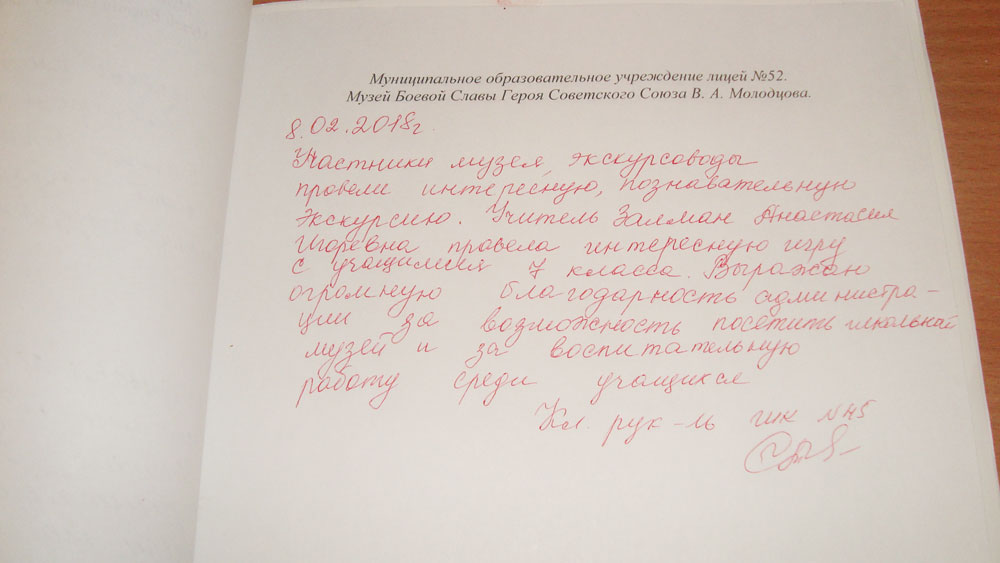 Муниципальное образовательное учреждение лицей №52.
Музей Боевой Славы Героя Советского Союза В. А. Молодцова.
8.02.2018г.
Участники музея, экскурсоводы
провели интересную, познавательную
экскурсию. Учитель Залман Анастасия
Игоревна провела интересную игру
с учащимися 7 класса. Выражаю
огромную благодарность администра-
ции за возможность посетить школьный
музей и за воспитательную
работу среди учащихся
Кл. рук-ль шк №45